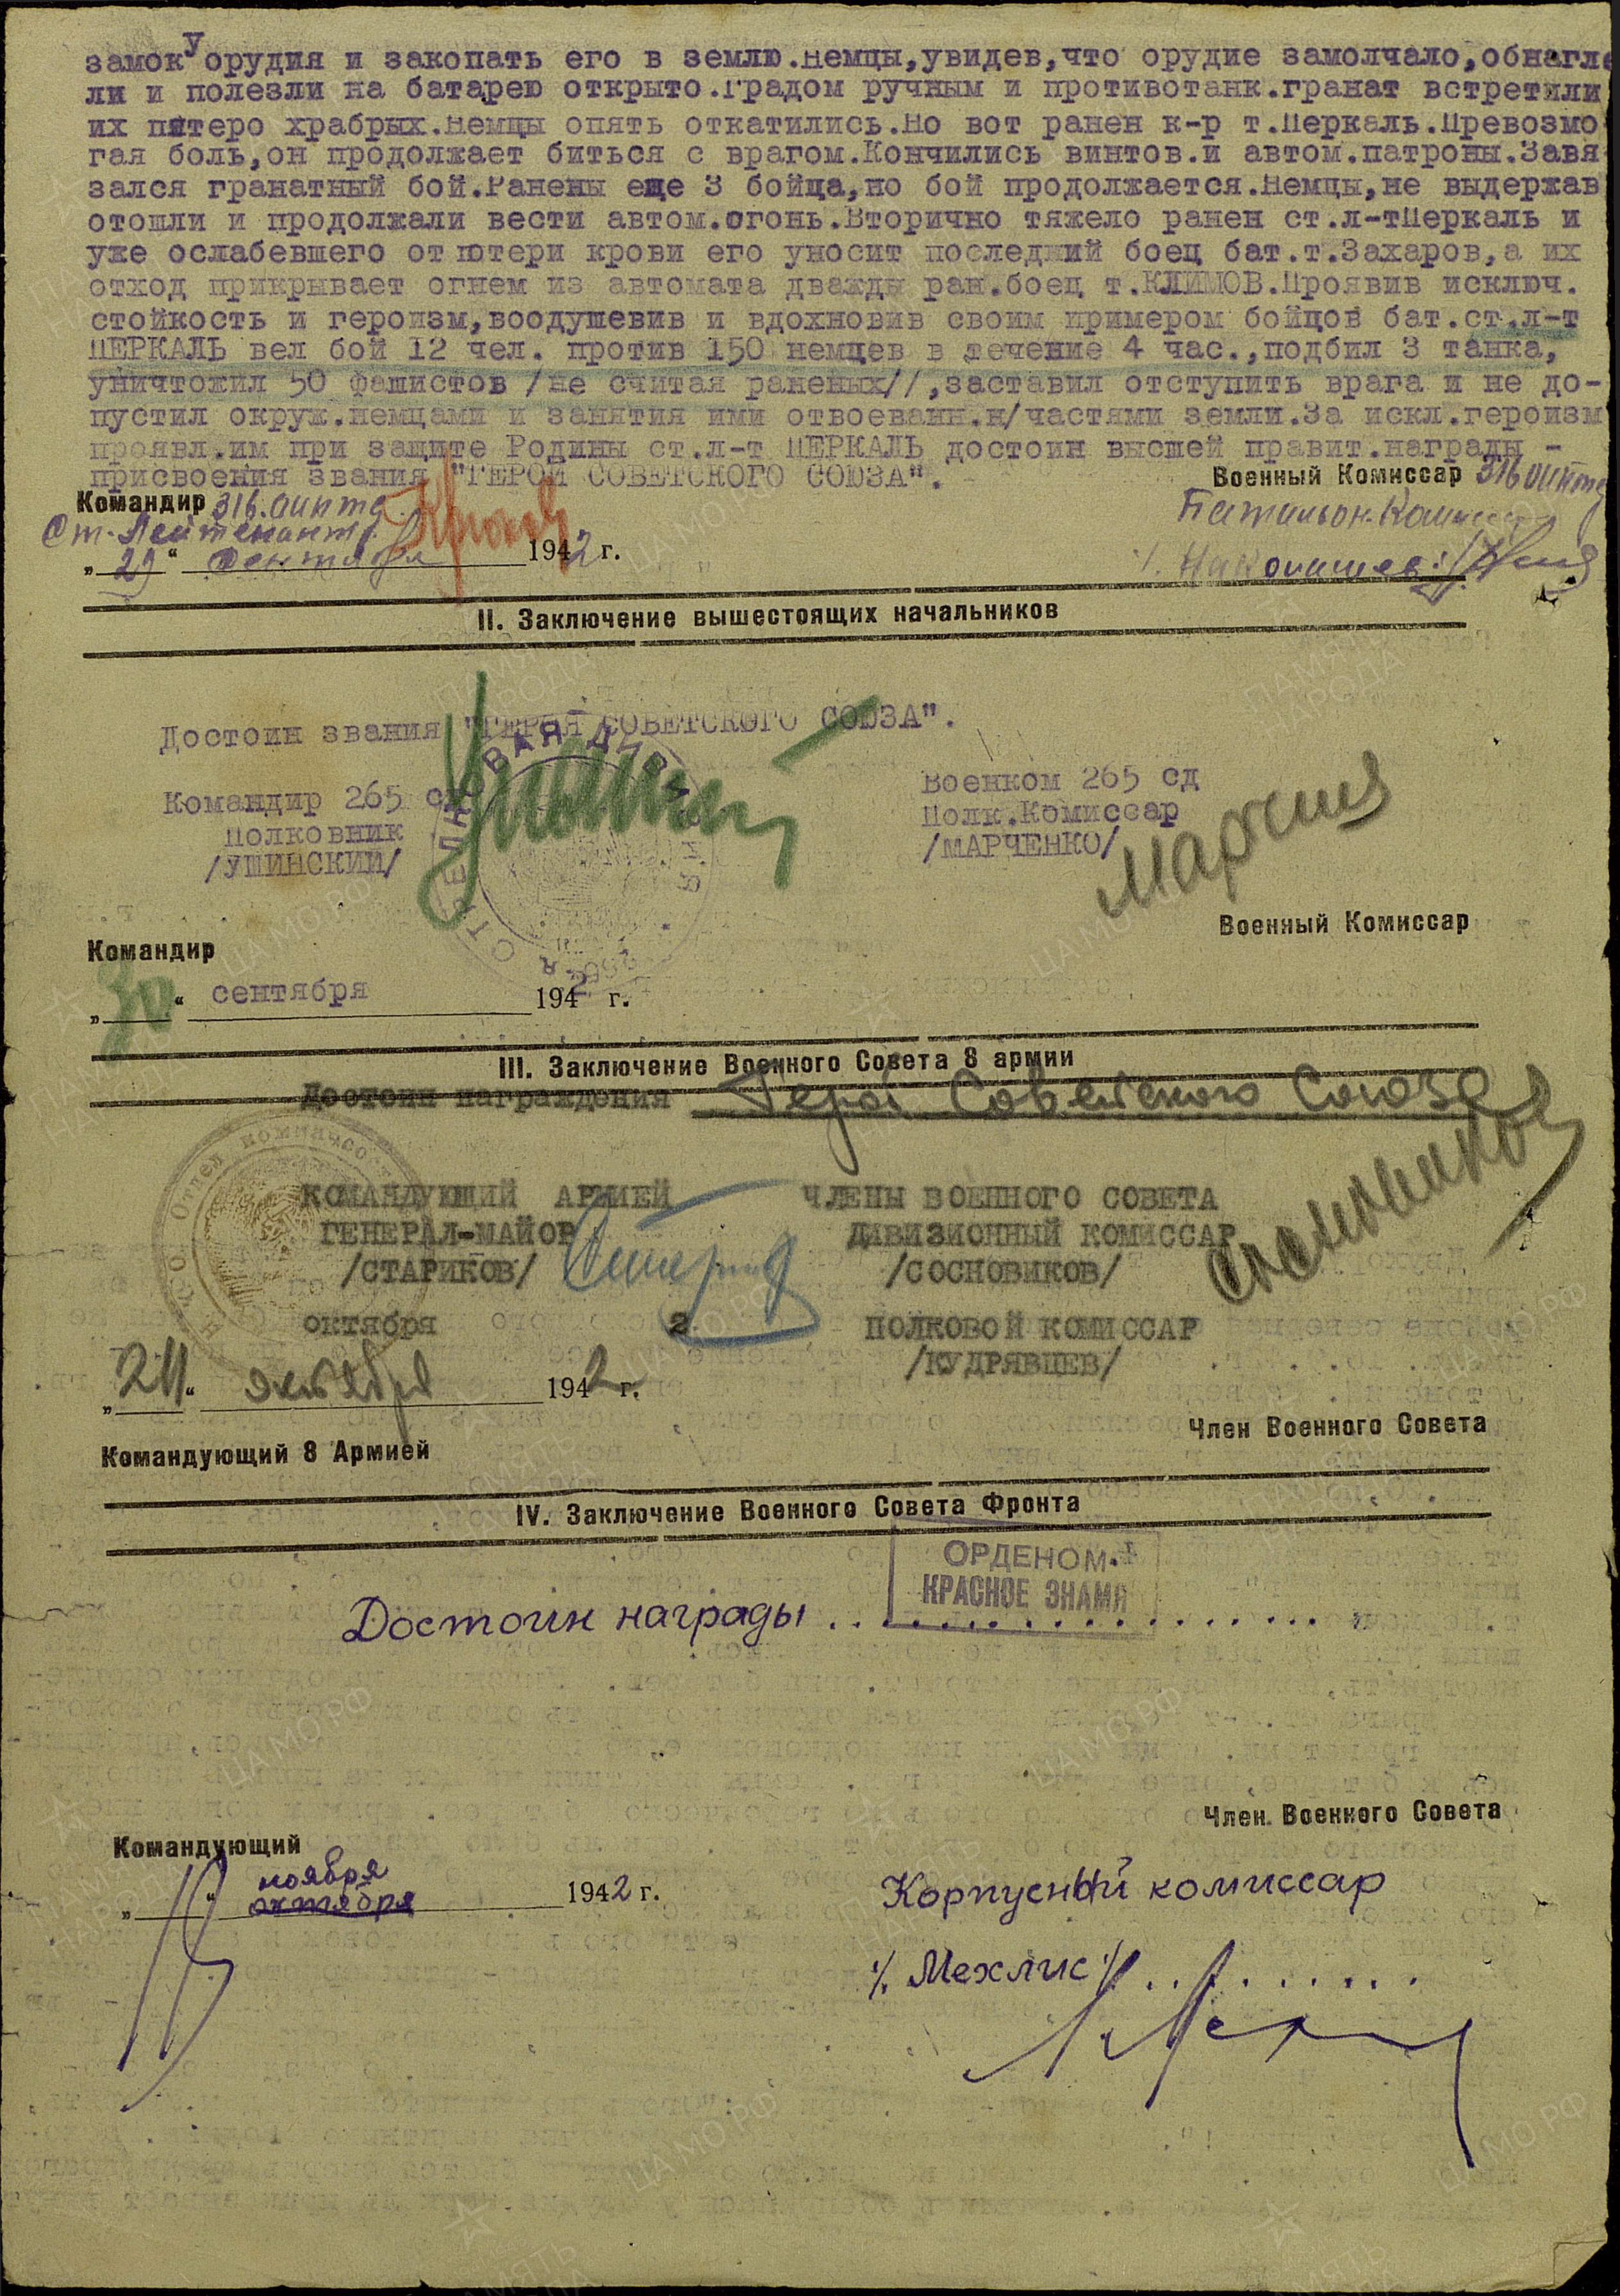 замок у орудия и закопать его в землю.Немцы,увидев,что орудие замолчало,обнагле
ли и полезли на батарею открыто.Градом ручным и противотанк.гранат встретили
их пятеро храбрых.Немцы опять откатились.Но вот ранен к-р т.Перкаль.Превозмо
гая боль,он продолжает биться с врагом.Кончились винтов.и автом.патроны.Завя
зался гранатный бой.Ранены еще 3 бойца,но бой продолжается.Немцы,не выдержав
отошли и продолжали вести автом.огонь.Вторично тяжело ранен ст.л-тПеркаль и
уже ослабевшего от потери крови его уносит последний боец бат.т.Захаров,а их
отход прикрывает огнем из автомата дважды ран.боец т.КЛИМОВ.Проявив исключ.
стойкость и героизм,воодушевив и вдохновив своим примером бойцов бат.ст.л-т
ПЕРКАЛЬ вел бой 12 чел. против 150 немцев в течение 4 час.,подбил 3 танка,
уничтожил 50 фашистов /не считая раненых//,заставил отступить врага и не до-
пустил окруж.немцами и занятия ими отвоеванн.н/частями земли.За искл.героизм
проявл.им при защите Родины ст.л-т ПЕРКАЛЬ достоин высшей правит.награды -
присвоения звания "ГЕРОЙ СОВЕТСКОГО СОЮЗА".
Командир 316.оиптд
Военный Комиссар 316 оиптд
Ст. Лейтенант
Батальон.Комиссар
„29“ сентября 1942 г.
II. Заключение вышестоящих начальников
Достоин звания "ГЕРОЯ СОВЕТСКОГО СОЮЗА".
Командир 265 сд
Полковник
/УШИНСКИЙ/
Военком 265 сд
Полк.Комиссар
/МАРЧЕНКО/
Марченко
СТРЕЛКОВАЯ ДИВИЗИЯ
Военный Комиссар
Командир
„30“ сентября 1942 г.
III. Заключение Военного Совета 8 армии
Достоин награждения Герой Советского Союза
КОМАНДУЮЩИЙ АРМИЕЙ
ГЕНЕРАЛ-МАЙОР
/СТАРИКОВ/
ЧЛЕНЫ ВОЕННОГО СОВЕТА
ДИВИЗИОННЫЙ КОМИССАР
/СОСНОВИКОВ/
Сосновиков
октября 2
ПОЛКОВОЙ КОМИССАР
/КУДРЯВЦЕВ/
„24“ октября 1942 г.
Член Военного Совета
Командующий 8 Армией
IV. Заключение Военного Совета Фронта
ОРДЕНОМ
КРАСНОЕ ЗНАМЯ
Достоин награды . . . . . . . . . . . . . . . . . .
Член Военного Совета
Командующий
ноября
октября 1942 г.
Корпусный комиссар
/. Мехлис ./ . . . . . . . .